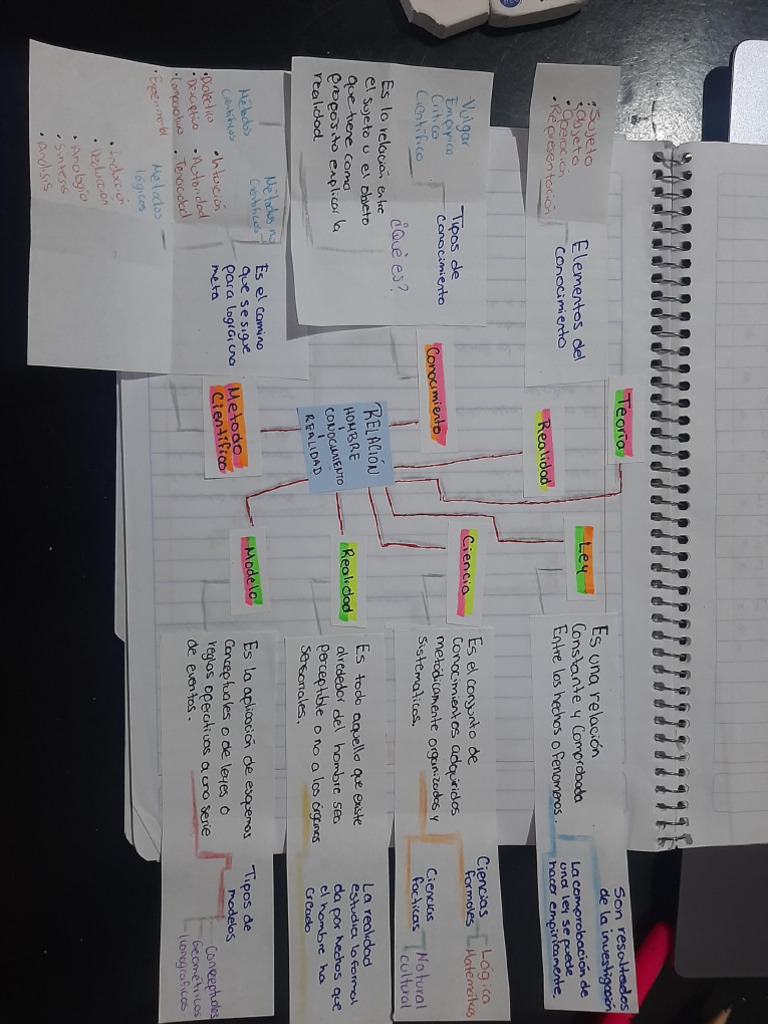 RELACIÓN
HOMBRE
CONOCIMIENTO
REALIDAD
Teoría
Elementos del
conocimiento
• Sujeto
• Objeto
• Operación
• Representación
Realidad
Conocimiento
Tipos de
conocimiento
Vulgar
Empírico
Crítico
Científico
¿Qué es?
Es la relación entre
el sujeto u el objeto
que tiene como
proposito explicar la
realidad.
Metodo
Cientifico
Es el camino
que se sigue
para lograr una
meta
Métodos no
Científicos
• Intuición
• Autoridad
• Tenacidad
Métodos
Científicos
• Dialectivo
• Descriptivo
• Comparativo
• Experimental
Métodos
lógicos
• Inducción
• Deducción
• Analogía
• Síntesis
• Análisis
Ley
Es una relación
Constante y Comprobada
Entre los hechos o fenomeros.
Son resultados
de la investigación
La comprobación de
una ley se puede
hacer empiricamente.
Ciencia
Es el conjunto de
Conocimientos adquiridos
metódicamente organizados y
sistematicos.
Ciencias
formales
Lógica
Matemáticas
Ciencias
facticas
Natural
cultural
Realidad
Es todo aquello que existe
alrededor del hombre sea
perceptible o no a los órganos
sensoriales.
La realidad
estudia la forma
da por hechos que
el hombre ha
creado
Modelo
Es la aplicación de esquemas
Conceptuales o de leyes o
reglas operativos a una serie
de eventos.
Tipos de
modelos
Conceptuales
Geométricos